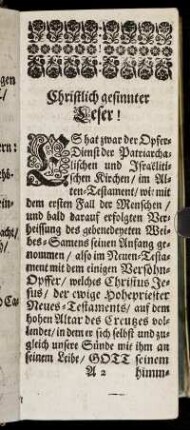 Christlich gesinnter
Leser!
ES hat zwar der Opfer-
Dienst der Patriarcha-
lischen und Israëliti-
schen Kirchen / im Al-
ten-Testament / wie mit
dem ersten Fall der Menschen /
und bald darauf erfolgten Ver-
heissung des gebenedeyeten Wei-
bes-Samens seinen Anfang ge-
nommen / also im Neuen-Testa-
ment mit dem einigen Versöhn-
Opffer / welches Christus Je-
sus / der ewige Hohepriester
Neues-Testaments / auf dem
hohen Altar des Creutzes vol-
lendet / in dem er sich selbst und zu-
gleich unsere Sünde mit ihm an
seinem Leibe / GOTT seinem
A 2 himm-